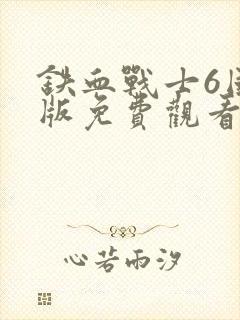 鉄血戰士6国
版免費觀看
心若雨汐